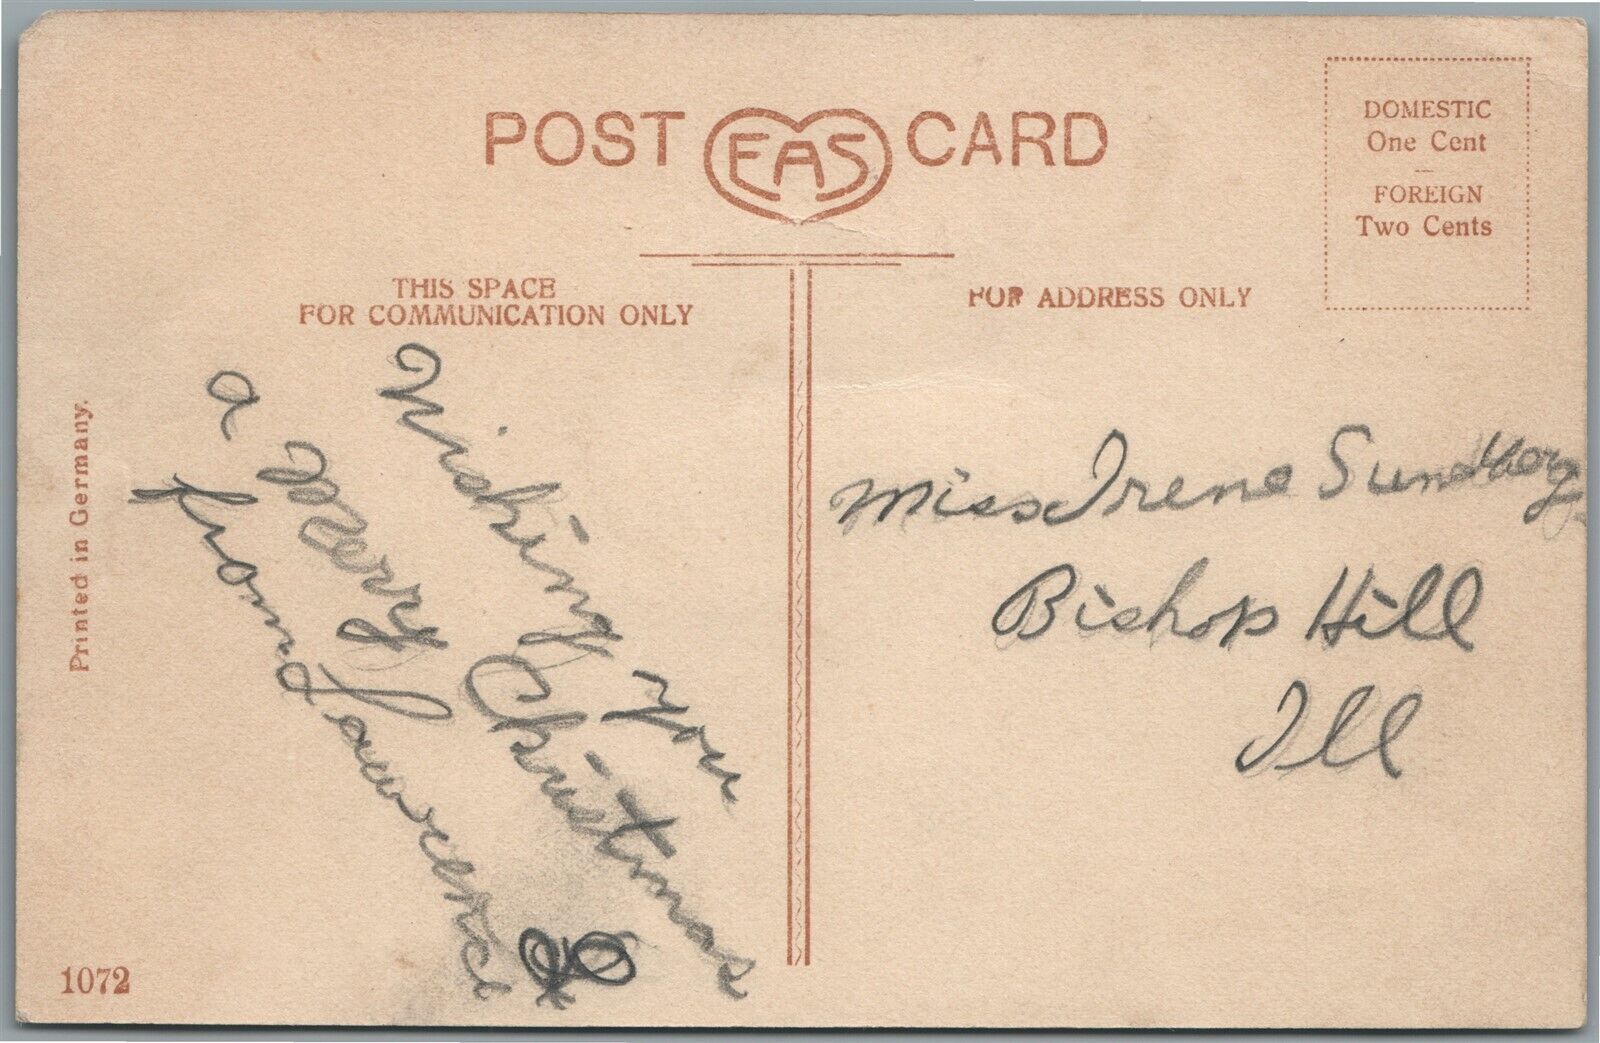 POST EAS CARD
DOMESTIC
One Cent
FOREIGN
Two Cents
THIS SPACE
FOR COMMUNICATION ONLY
FOR ADDRESS ONLY
Wishing you
a Merry Christmas
from Lawrence
Miss Irene Sundberg
Bishop Hill
Ill
Printed in Germany.
1072